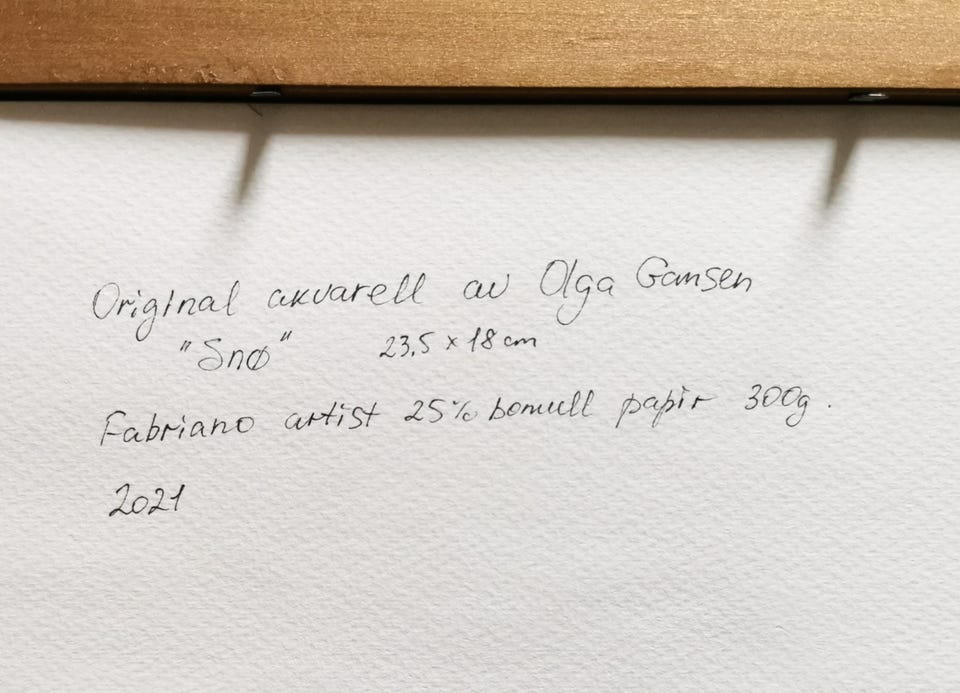 Original akvarell av Olga Gamsen
"Snø" 23,5 x 18 cm
Fabriano artist 25% bomull papir 300g.
2021